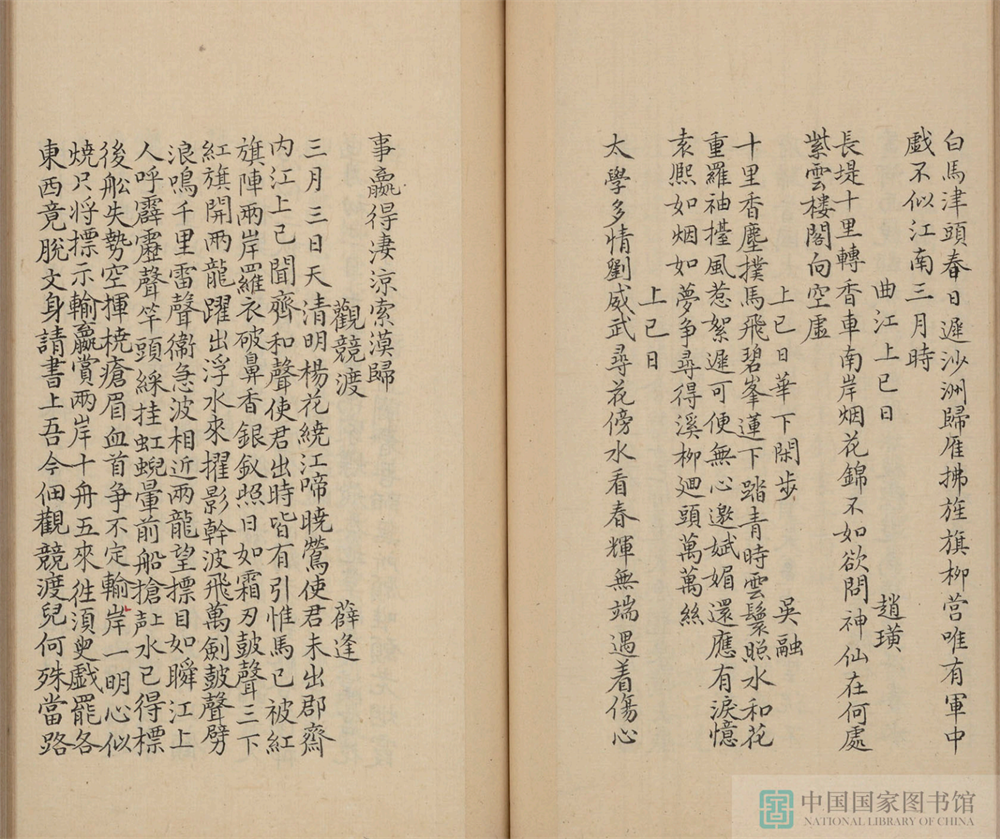 白馬津頭春日遲沙洲歸雁拂旌旗柳營唯有軍中
戲不似江南三月時
曲江上巳日 趙璜
長堤十里轉香車南岸烟花錦不如欲問神仙在何處
紫雲樓閣向空虛
上巳日華下閑步 吳融
十里香塵撲馬飛碧峯蓮下踏青時雲鬟照水和花
重羅袖擡風惹絮遲可便無心邀娬媚還應有淚憶
袁熙如烟如夢爭尋得溪柳廻頭萬萬絲
上巳日
太學多情劉威武尋花傍水看春輝無端遇着傷心
事贏得淒涼索漠歸
觀競渡 薛逢
三月三日天清明楊花繞江啼曉鶯使君未出郡齋
內江上已聞齊和聲使君出時皆有引惟馬已被紅
旗陣兩岸羅衣破鼻香銀釵照日如霜刃鼓聲三下
紅旗開兩龍躍出浮水來擢影幹波飛萬劍鼓聲劈
浪鳴千里雷聲衝急波相近兩龍望標目如瞬江上
人呼霹靂聲竿頭綵挂虹蜺暈前船搶水已得標
後船失勢空揮橈瘡眉血首爭不定輸岸一明心似
燒只將標示輸贏賞兩岸十舟五來往須臾戲罷各
東西竟脫文身請書上吾今佃觀競渡兒何殊當路
中国国家图书馆
NATIONAL LIBRARY OF CHINA